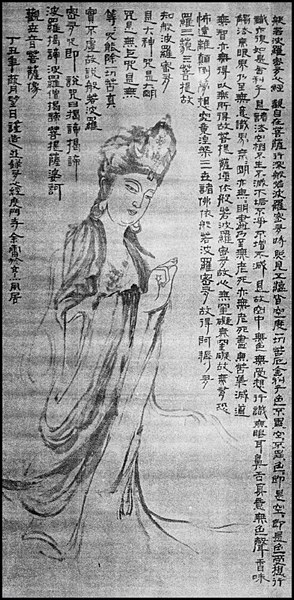 般若波羅密多心經 觀自在菩薩行深般若波羅密多時照見五蘊皆空度一切苦厄舍利子色不異空空不異色色即是空空即是色受想行
識亦復如是舍利子是諸法空相不生不滅不垢不淨不增不減是故空中無色無受想行識無眼耳鼻舌身意無色聲香味
觸法無眼界乃至無意識界無無明亦無無明盡乃至無老死亦無老死盡無苦集滅道
無智亦無得以無所得故菩提薩埵依般若波羅密多故心無罣礙無罣礙故無有恐
怖遠離顛倒夢想究竟涅槃三世諸佛依般若波羅密多故得阿耨多
羅三藐三菩提故
知般若波羅密多
是大神咒是大明
咒是無上咒是無
等等咒能除一切苦真
實不虛故說般若波羅
密多咒即說咒曰揭諦揭諦
波羅揭諦波羅僧揭諦菩提薩婆訶
觀世音菩薩像
丁丑年月望日謹造並錄多心經